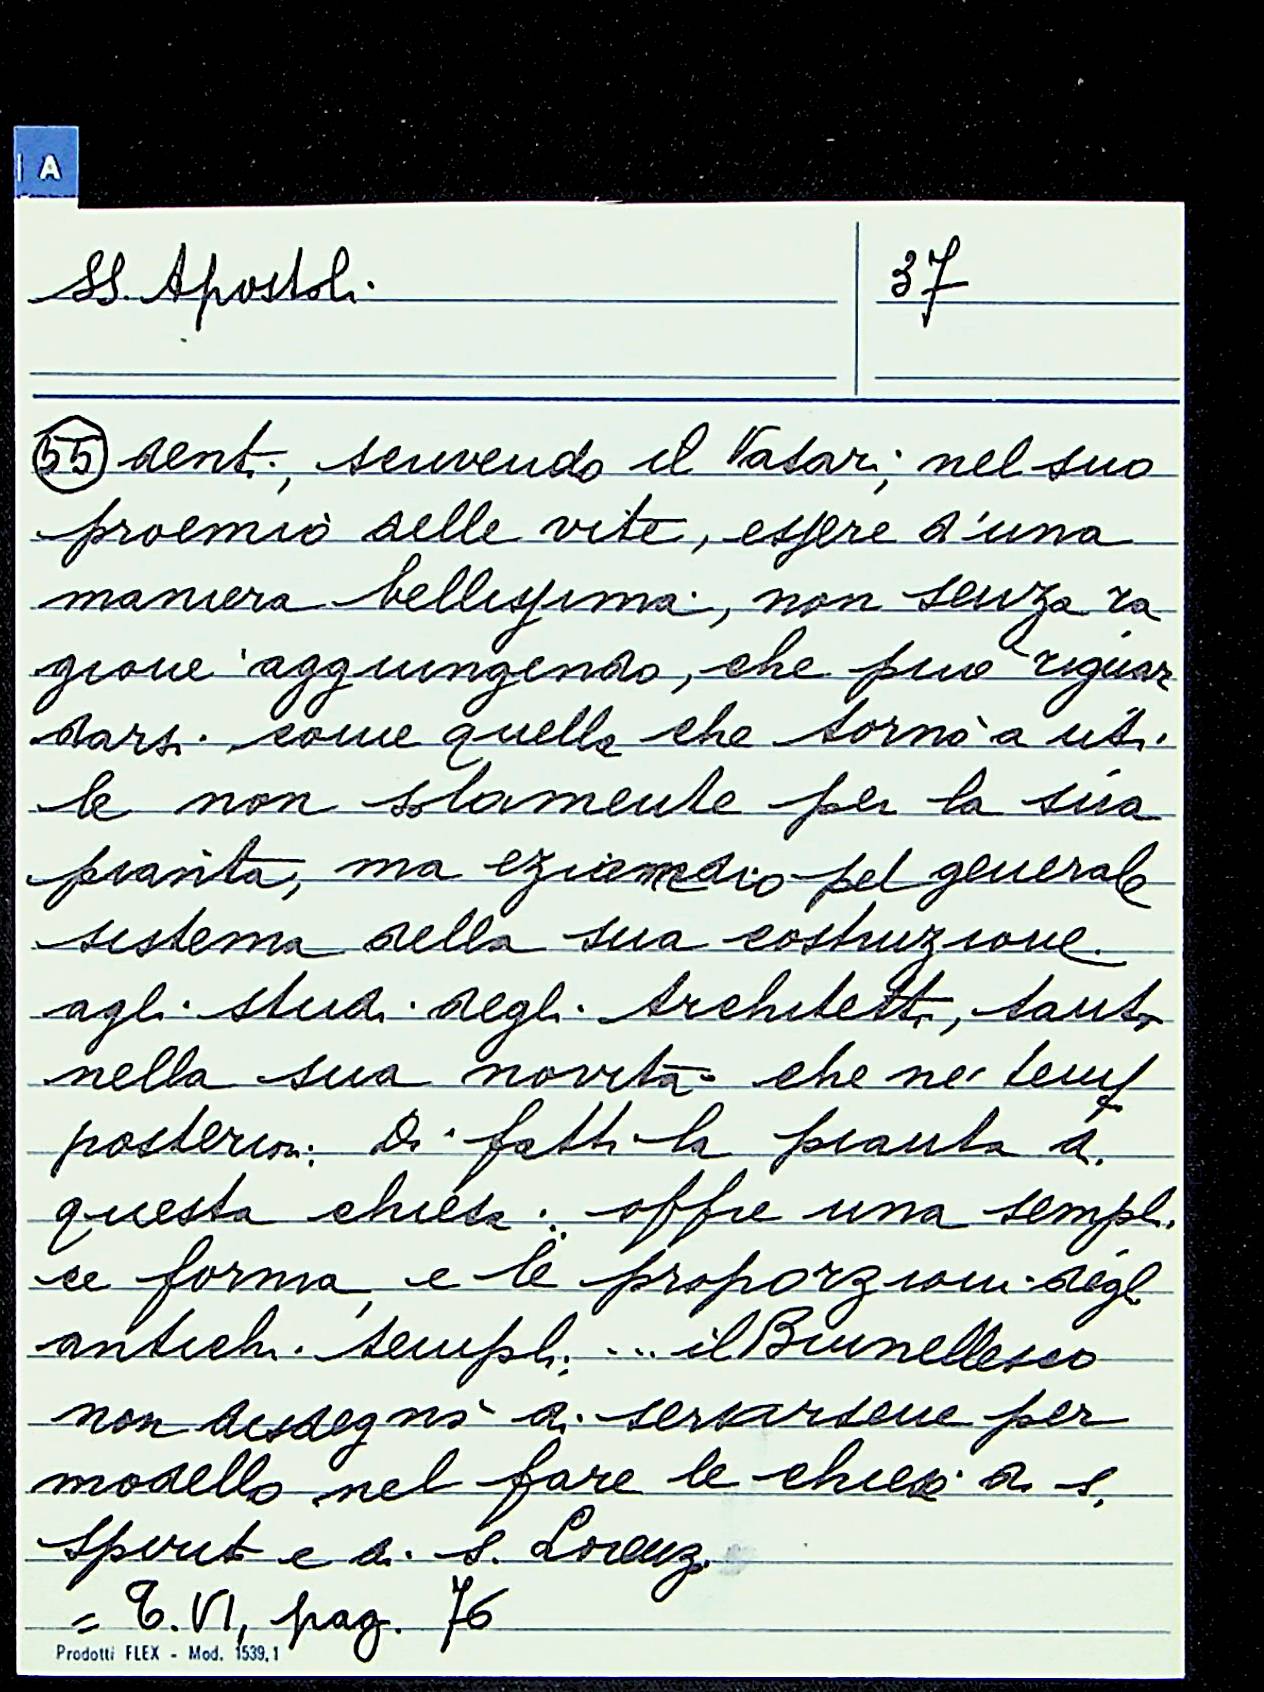 A
SS. Apostoli
37
55 denti, scrivendo il Vasari, nel suo
proemio delle vite, essere d'una
maniera bellissima, non senza ra
gione aggiungendo, che può riguar
darsi come quella che tornò a uti
le non solamente per la sua
pianta, ma eziamdio pel generale
sistema della sua costruzione
agli studi degli Architetti, tanto
nella sua novità che ne' tempi
posteriori. Di fatti la pianta di
questa chiesa offre una sempli
ce forma, e le proporzioni degli
antichi templi; ... il Brunellesco
non disdegnò di servirsene per
modello nel fare le chiese di s.
Spirito e di s. Lorenzo.
= T. VI, pag. 76
Prodotti FLEX - Mod. 1539,1